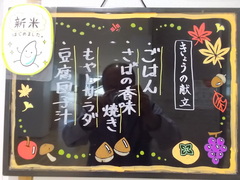 新米
はじめました。
きょうの献立
・ごはん
・さばの香味焼き
・もやしサラダ
・豆腐団子汁